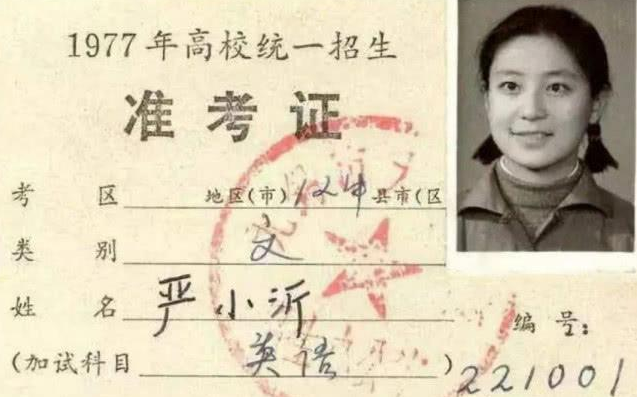 1977年高校统一招生
准考证
考 区 地区(市) 汉中 县市(区
类 别 文
姓 名 严小沂
编 号:
(加试科目 英语 ) 221001